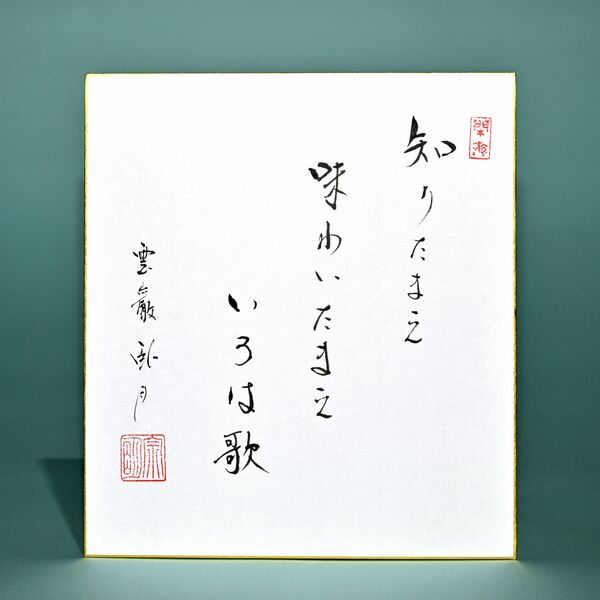 知りたまえ
味わいたまえ
いろは歌
雲巌 月